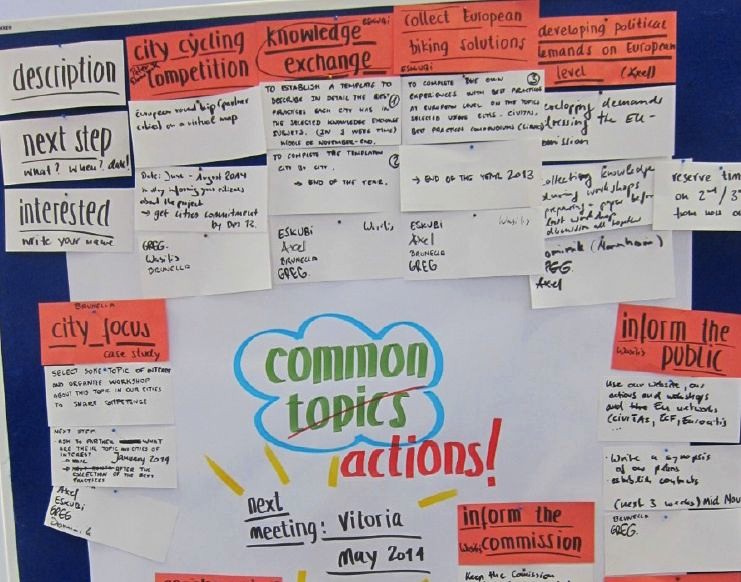 description
next step
what? when? date!
interested
write your name
city cycling
competition
European round trip (partner
cities) on a virtual map
Date: June - August 2014
about the project
→ get cities commitment
by Dec 13.
GREG.
Wasilis
BRUNELLA
ESKUBI
knowledge
exchange
TO ESTABLISH A TEMPLATE TO
DESCRIBE IN DETAIL THE BEST
PRACTICES EACH CITY HAS IN
THE SELECTED KNOWLEDGE EXCHANGE
SUBJECTS. (IN 3 WEEKS TIME)
MIDDLE OF NOVEMBER-END.
1
TO COMPLETE THE TEMPLATES
CITY BY CITY.
2
→ END OF THE YEAR.
Wasilis
ESKUBI
Axel
BRUNELLA
GREG.
collect European
biking solutions
ESKUBI
TO COMPLETE THE OWN
3
EXPERIENCES WITH BEST PRACTICES
AT EUROPEAN LEVEL ON THE TOPICS
SELECTED
BEST PRACTICE
→ END OF THE YEAR 2013
Wasilis
ESKUBI
Axel
BRUNELLA
GREG
developing political
demands on European
level (Axel)
demands
the EU-
collecting knowledge
during workshops
preparing a paper before
last workshop
discussion all together
(Mannheim)
Axel
reserve time
on 2nd / 3
BRUNELLA
city focus
case study
SELECT SOME TOPIC OF INTEREST
AND ORGANISE WORKSHOP
ABOUT THIS TOPIC IN OUR CITIES
TO SHARE COMPETENCE
NEXT STEP
- ASK TO PARTNER WHAT
ARE THEIR TOPIC AND CITIES OF
INTEREST
January 2014
AFTER THE
COLLECTION OF THE BEST
PRACTICES
Axel
ESKUBI
GREG
common
topics
actions!
next
meeting: Vitoria
May 2014
inform the
Wasilis public
Use our website, our
actions and workshops
and the EU networks
(CIVITAS, ECF, Eurocities
...
- Write a synopsis
of our plans
- establish contacts
(next 3 weeks) Mid Nov
BRUNELLA
GREG.
inform the
commission
Keep the Comission